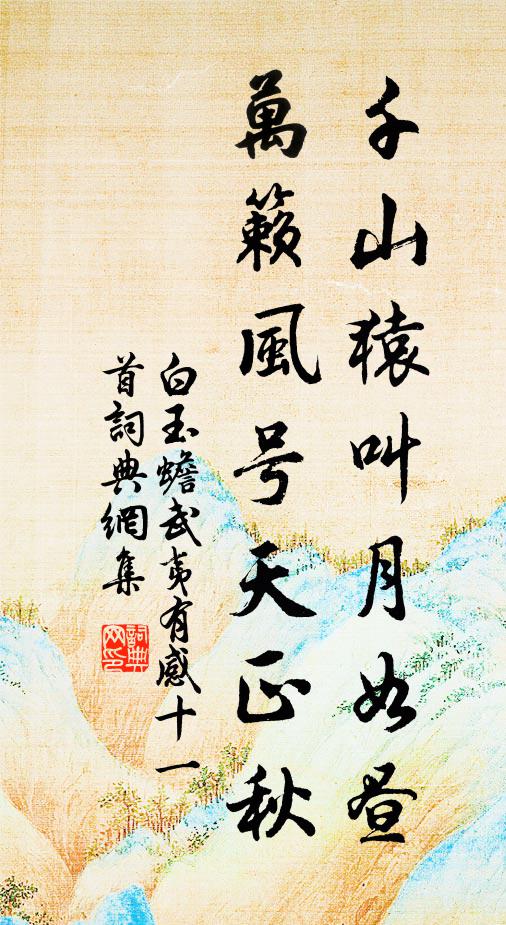 千山猿叫月如昼
萬籟風号天正秋
白玉蟾武夷有感十一
首詞典網集
詞典网印